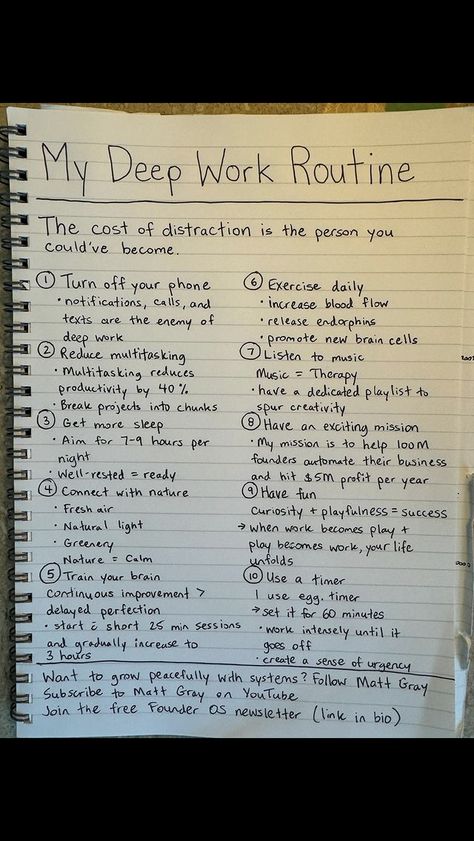 My Deep Work Routine
The cost of distraction is the person you
could've become.
① Turn off your phone
• notifications, calls, and
texts are the enemy of
deep work
② Reduce multitasking
• Multitasking reduces
productivity by 40%
• Break projects into chunks
③ Get more sleep
• Aim for 7-9 hours per
night
• Well-rested = ready
④ Connect with nature
• Fresh air
• Natural light
• Greenery
Nature = Calm
⑤ Train your brain
Continuous improvement >
delayed perfection
• start c̄ short 25 min sessions
and gradually increase to
3 hours
⑥ Exercise daily
• increase blood flow
• release endorphins
• promote new brain cells
⑦ Listen to music
Music = Therapy
• have a dedicated playlist to
spur creativity
⑧ Have an exciting mission
• My mission is to help 100M
founders automate their business
and hit $5M profit per year
⑨ Have fun
Curiosity + playfulness = success
→ when work becomes play +
play becomes work, your life
unfolds
⑩ Use a timer
I use egg. timer
→ set it for 60 minutes
• work intensely until it
goes off
• create a sense of urgency
Want to grow peacefully with systems? Follow Matt Gray
Subscribe to Matt Gray on YouTube
Join the free Founder OS newsletter (link in bio)